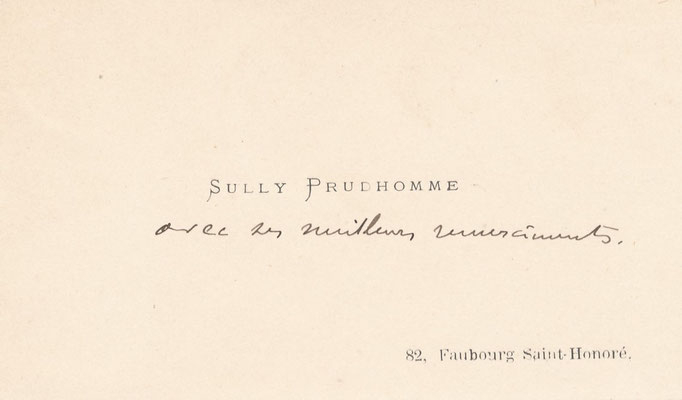 SULLY PRUDHOMME
avec ses meilleurs remerciments.
82, Faubourg Saint-Honoré.